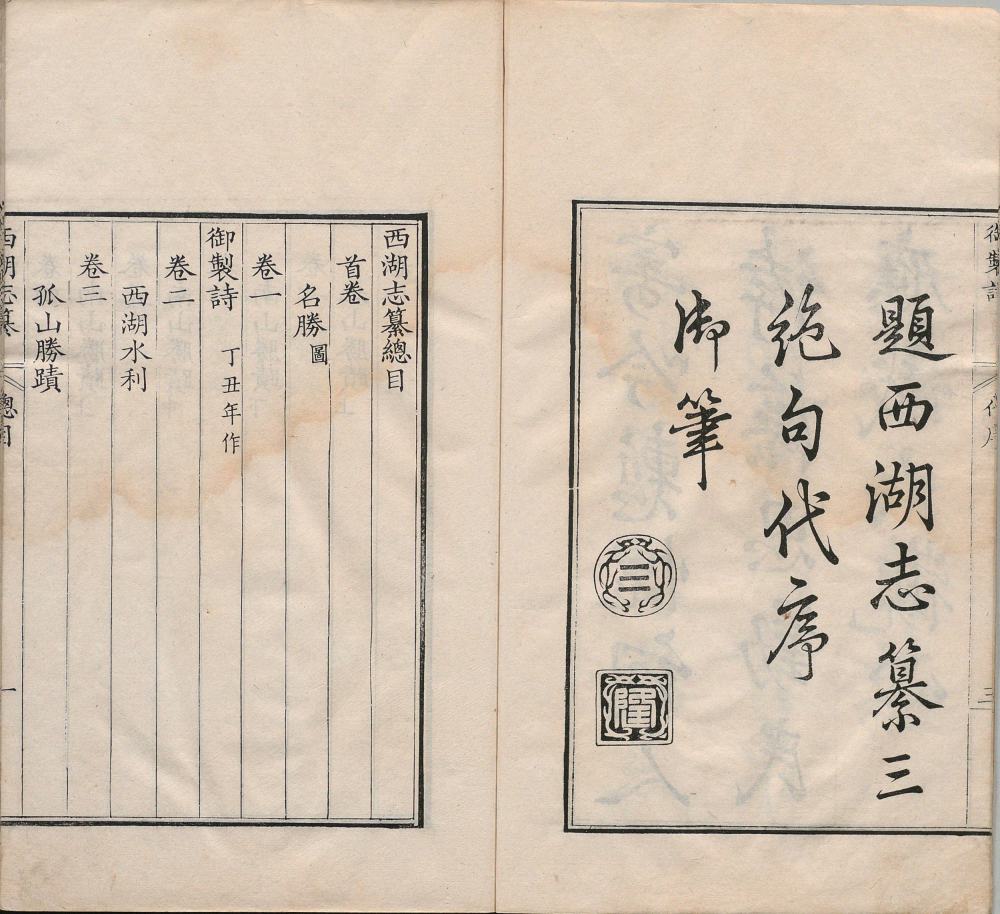 御製詩
三
題西湖志纂三
絶句代序
御筆
☰
隆
西湖志纂總目
首卷
名勝圖
卷一
御製詩 丁丑年作
卷二
西湖水利
卷三
孤山勝蹟
西湖志纂 總目 一